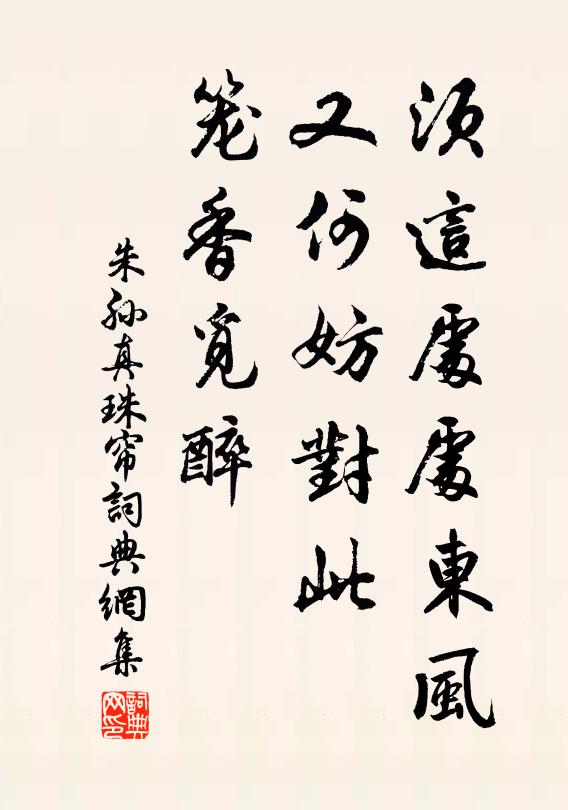 須這處處東風
又何妨對此
籠香覓醉
朱孫真珠帘詞典網集
詞典网印